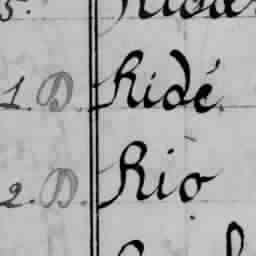 5.
1. D. Ridé
2. D. Rio